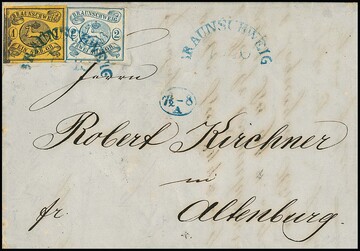 BRAUNSCHWEIG BRAUNSCHWEIG
1 2
BRAUNSCHWEIG
BRAUNSCHWEIG
7½-8
A
Herrn
Robert Kirchner
in
fr. Altenburg.